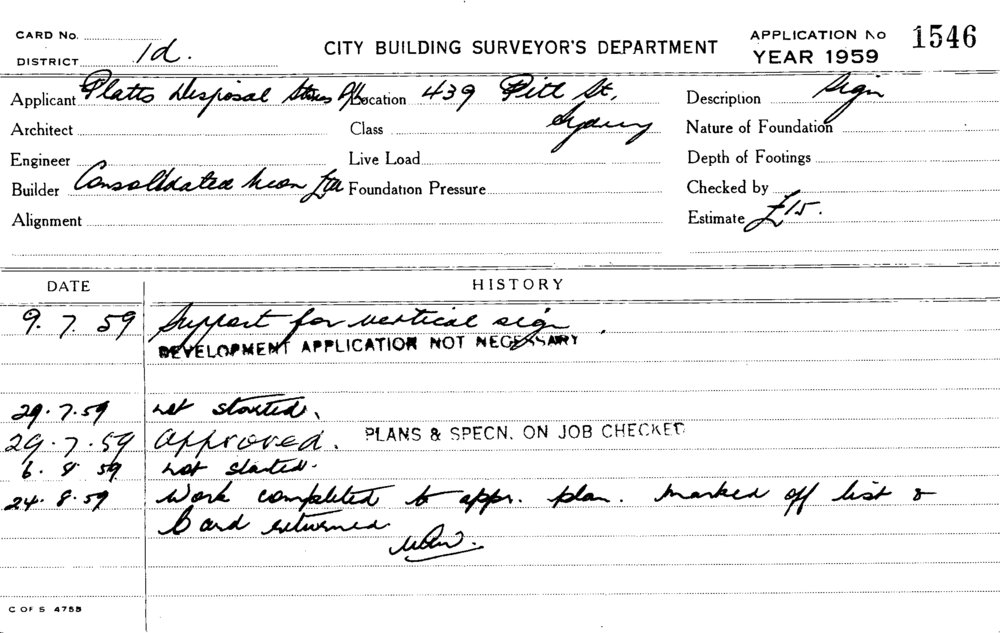 CARD No.
DISTRICT 1d.
CITY BUILDING SURVEYOR'S DEPARTMENT
APPLICATION No 1546
YEAR 1959
Applicant Platts Disposal Stores P/L Location 439 Pitt St, Description Sign
Architect Class Sydney Nature of Foundation
Engineer Live Load Depth of Footings
Builder Consolidated Neon Ltd Foundation Pressure Checked by
Alignment Estimate £15.
DATE HISTORY
9. 7. 59 Support for vertical sign.
DEVELOPMENT APPLICATION NOT NECESSARY
29.7.59 not started.
29.7.59 Approved. PLANS & SPECN. ON JOB CHECKED
6. 8 59 not started.
24.8.59 Work completed to appr. plan. marked off list &
Card returned
C OF S 4755